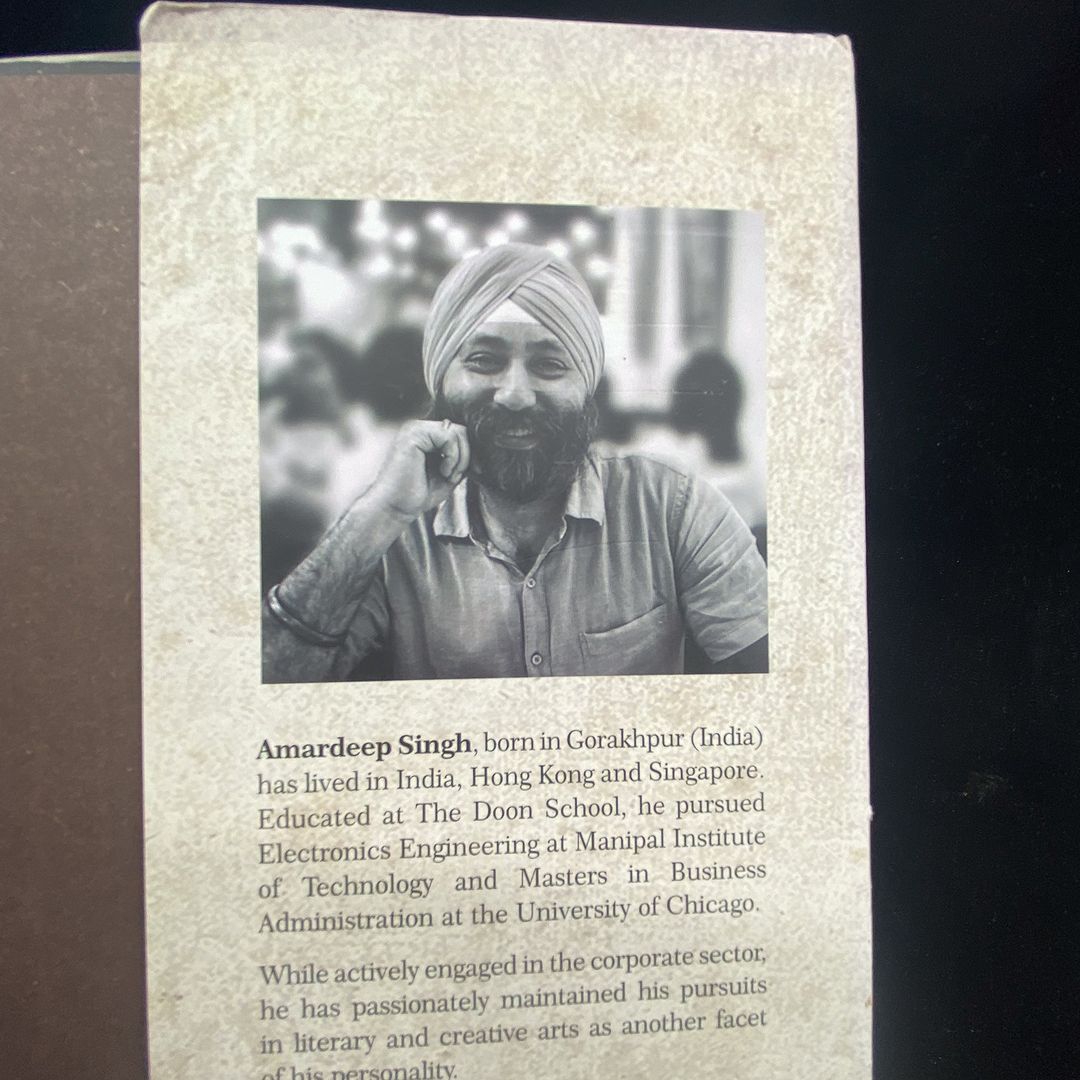 Amardeep Singh, born in Gorakhpur (India)
has lived in India, Hong Kong and Singapore.
Educated at The Doon School, he pursued
Electronics Engineering at Manipal Institute
of Technology and Masters in Business
Administration at the University of Chicago.
While actively engaged in the corporate sector,
he has passionately maintained his pursuits
in literary and creative arts as another facet
of his personality.